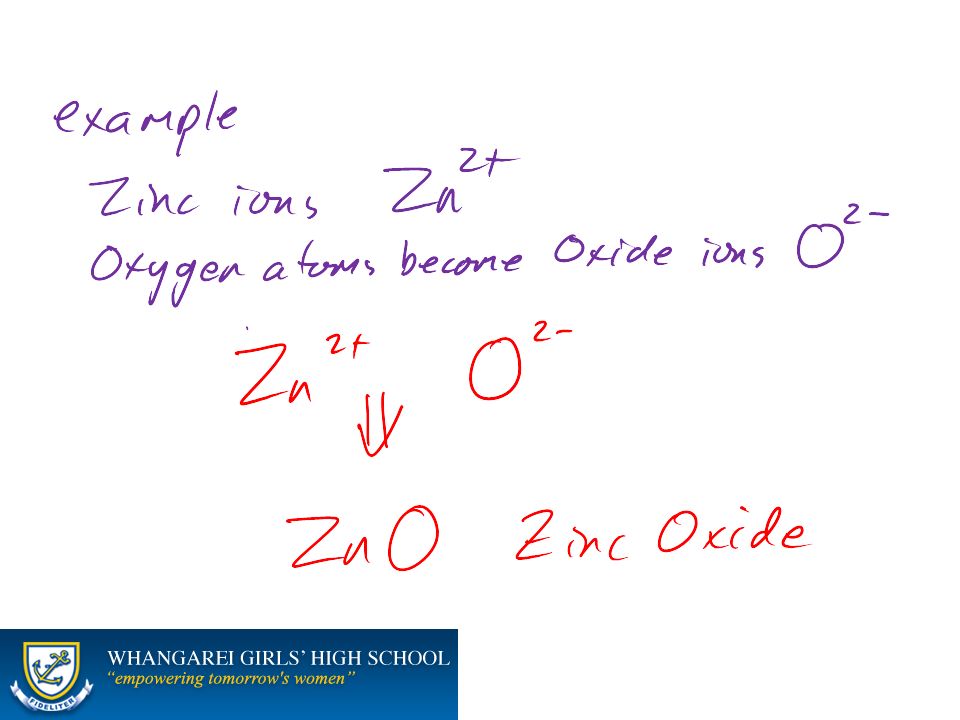 example
Zinc ions Zn²⁺
Oxygen atoms become Oxide ions O²⁻
Zn²⁺ O²⁻
⇓
ZnO Zinc Oxide
WHANGAREI GIRLS' HIGH SCHOOL
"empowering tomorrow's women"
FIDELITER